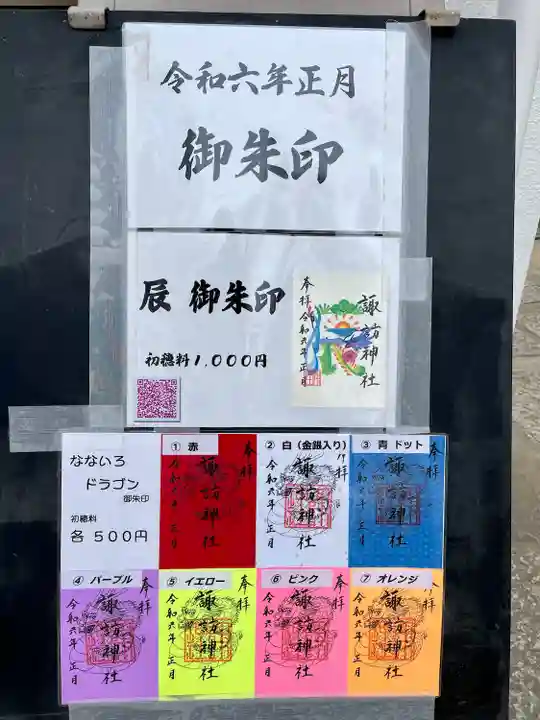 令和六年正月
御朱印
辰 御朱印
初穂料1,000円
奉拝
諏訪神社
令和六年正月
なないろ
ドラゴン
御朱印
初穂料
各500円
① 赤
奉拝
諏訪神社
令和六年正月
② 白（金銀入り）
奉拝
諏訪神社
令和六年正月
③ 青 ドット
奉拝
諏訪神社
令和六年正月
④ パープル
奉拝
諏訪神社
令和六年正月
⑤ イエロー
奉拝
諏訪神社
令和六年正月
⑥ ピンク
奉拝
諏訪神社
令和六年正月
⑦ オレンジ
奉拝
諏訪神社
令和六年正月